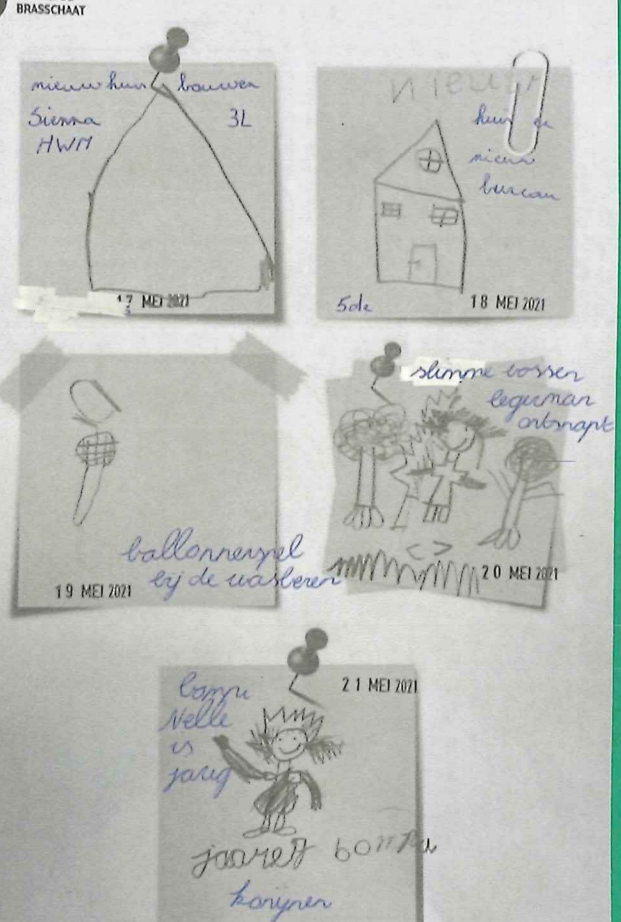 BRASSCHAAT
nieuw huis bouwen
Sienna 3L
HWM
17 MEI 2021
nieuw
huis de
nieuw
bureau
5de
18 MEI 2021
ballonnenspel
bij de wasberen
19 MEI 2021
slimme vossen
leguman
ontsnapt
< >
20 MEI 2021
21 MEI 2021
Nelle
is
jarig
jaarez
konijnen